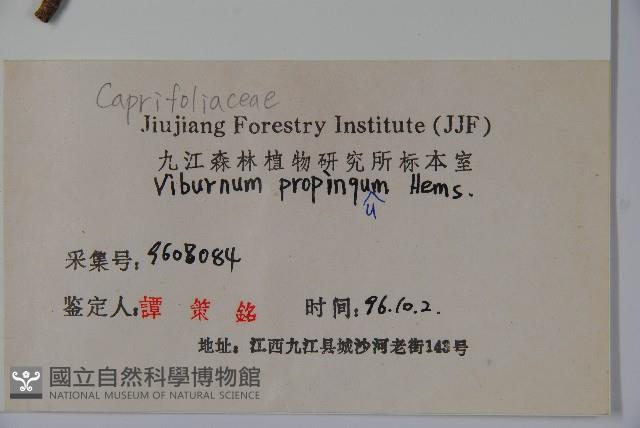 Caprifoliaceae
Jiujiang Forestry Institute (JJF)
九江森林植物研究所标本室
Viburnum propinqum Hems.
u
采集号: 9608084
鉴定人: 譚策銘 时间: 96.10.2.
地址: 江西九江县城沙河老街143号
國立自然科學博物館
NATIONAL MUSEUM OF NATURAL SCIENCE